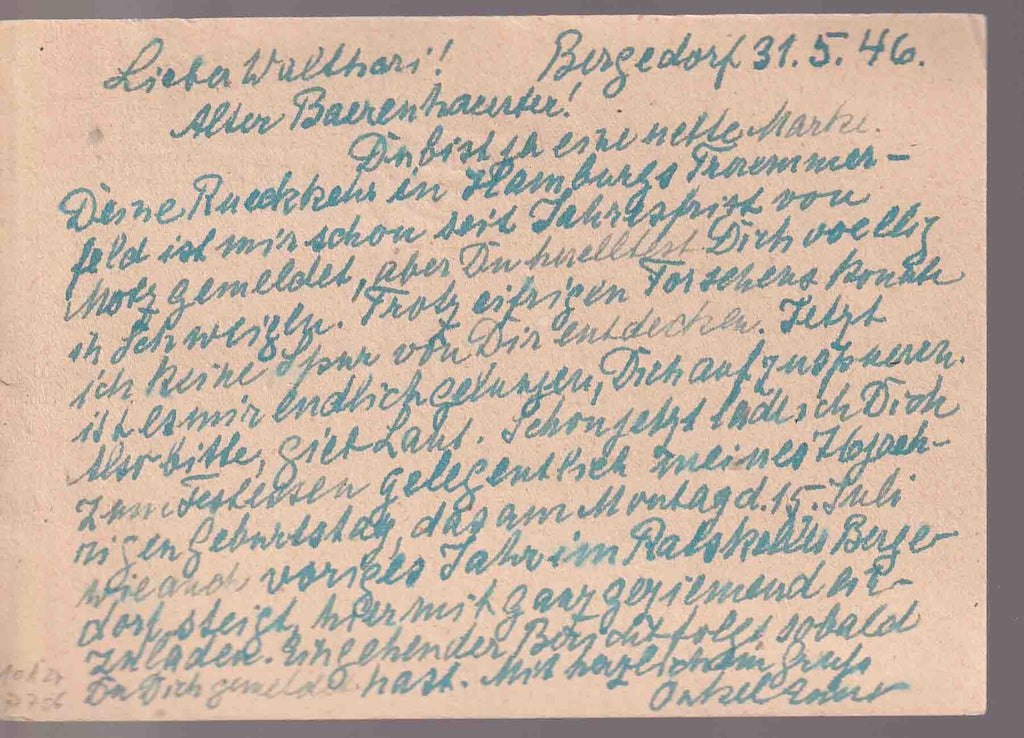 Lieber Walthari! Bergedorf 31.5.46.
Alter Baerenhaeuter!
Du bist ja eine nette Marke.
Deine Rueckkehr in Hamburgs Truemmer-
feld ist mir schon seit Jahresfrist von
gemeldet, aber Du huelltest Dich voellig
in Schweigen. Trotz eifrigen Forschens konnte
ich keine Spur von Dir entdecken. Jetzt
ist es mir endlich gelungen, Dich aufzuspueren.
Also bitte, gieb Laut. Schon jetzt lade ich Dich
zum Festessen gelegentlich meines
rigen Geburtstag, das am Montag d. 15. Juli
wie auch voriges Jahr im Ratskeller Berge-
dorf steigt, hiermit ganz geziemend ein-
zuladen. Eingehender Bericht folgt, sobald
Du Dich gemeldet hast. Mit herzlichem Gruss
Onkel